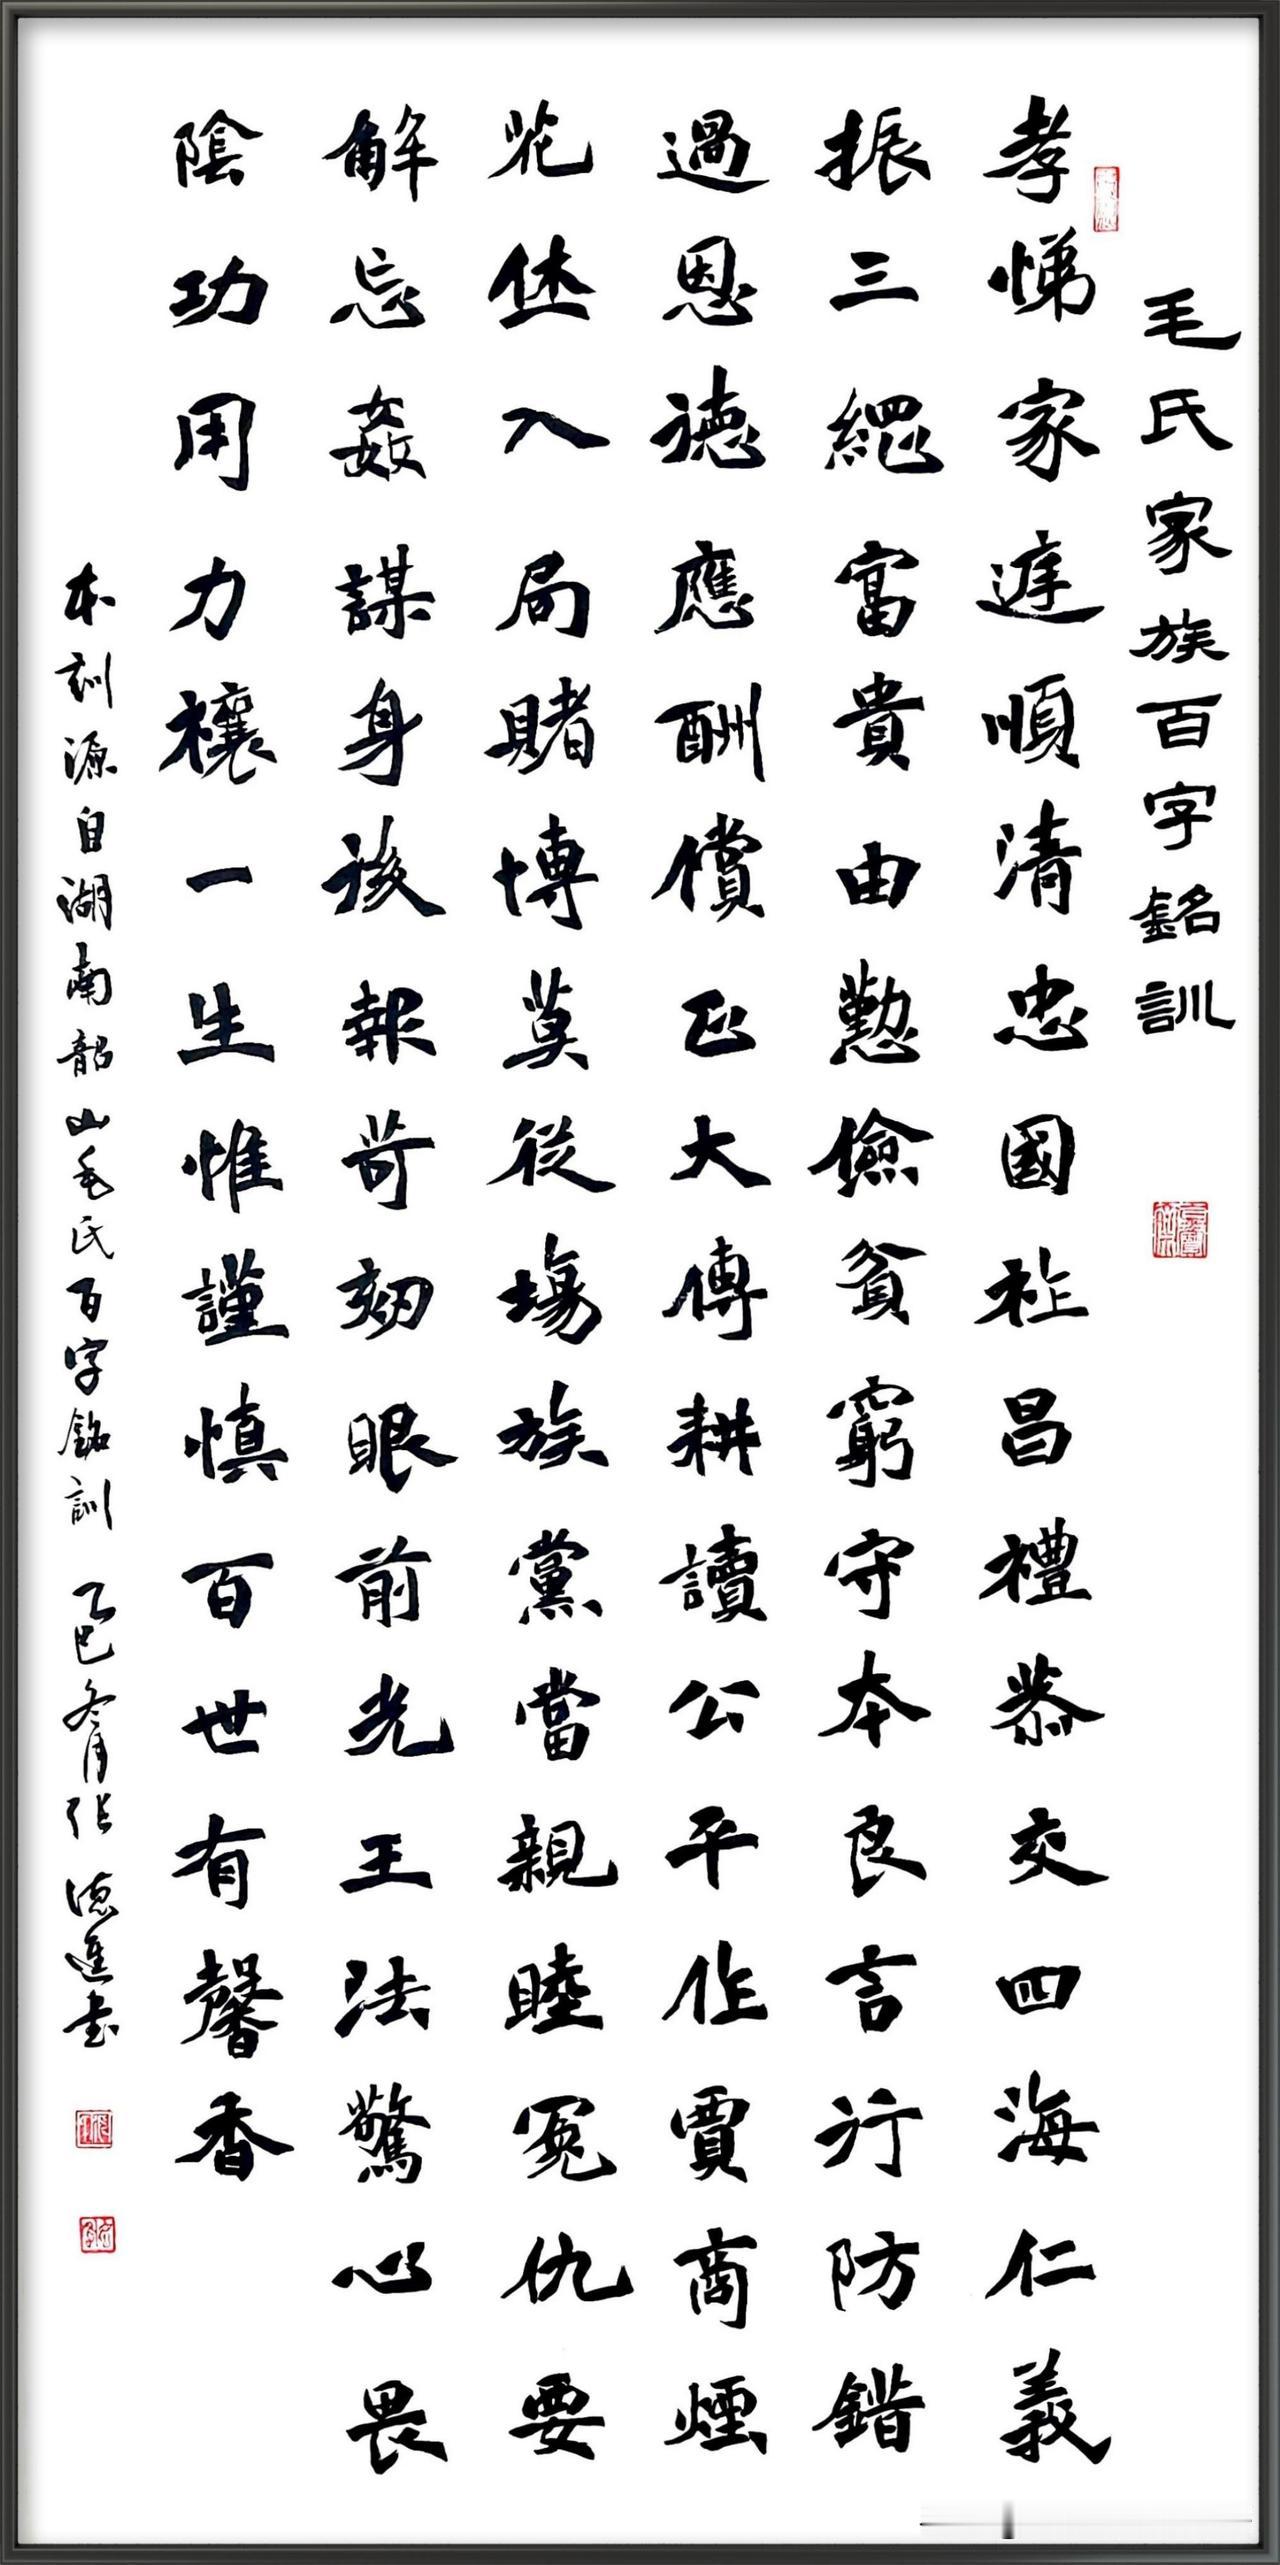 毛氏家族百字銘訓
孝悌家庭順清忠國祚昌禮恭交四海仁義
振三綱富貴由勤儉貧窮守本良言行防錯
過恩德應酬償正大傳耕讀公平作賈商煙
花休入局賭博莫從場族黨當親睦冤仇要
解忘姦謀身後報苛刻眼前光王法驚心畏
陰功用力穰一生惟謹慎百世有馨香
本训源自湖南韶山毛氏百字銘訓 乙巳冬月张德進书